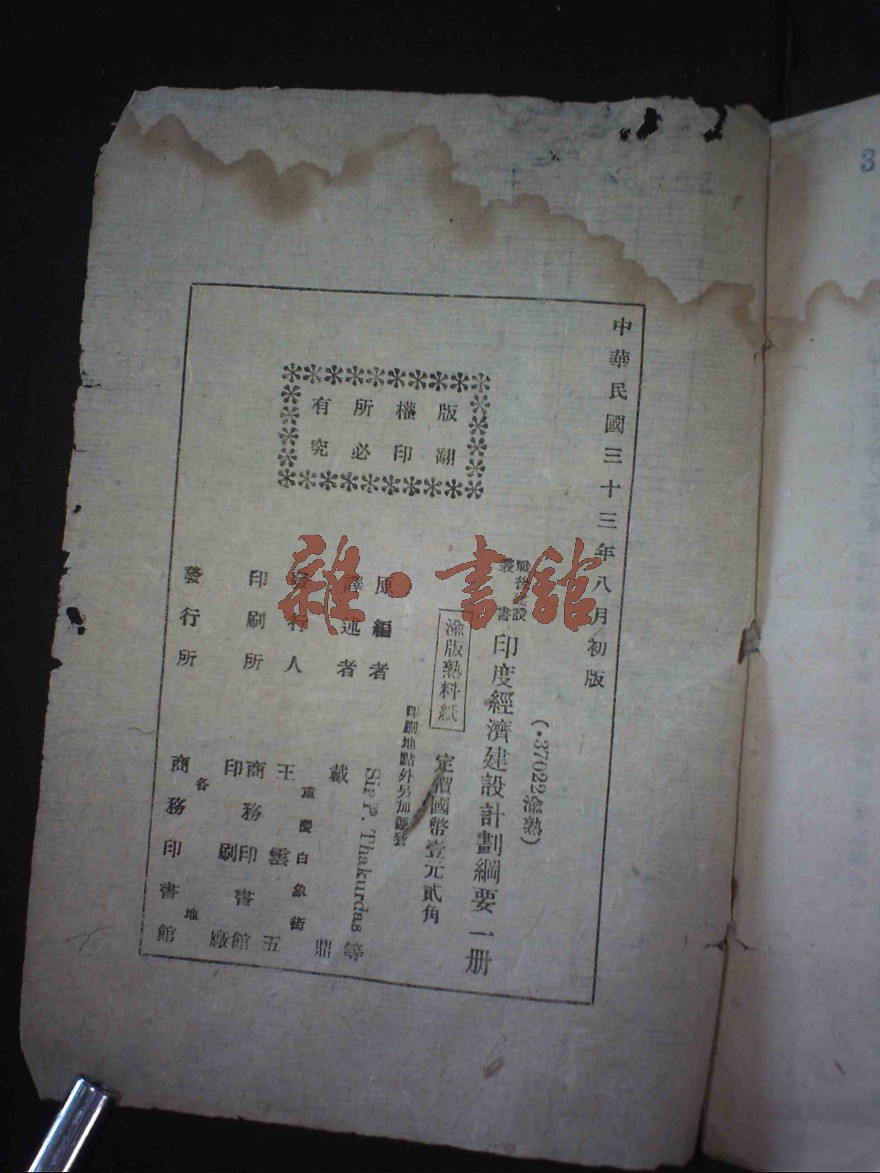 中華民國三十三年八月初版
(·37022渝熟)
戰後建設
叢書
印度經濟建設計劃綱要一册
渝版熟料紙
定價國幣壹元貳角
印刷地點外另加運費
版權所有
翻印必究
原編者 Sir P. Thakurdas 等
譯述者 戴鼎
重慶白象街
發行人 王雲五
印刷所 商務印書館
印刷廠
各地
發行所 商務印書館
雜·書館
3